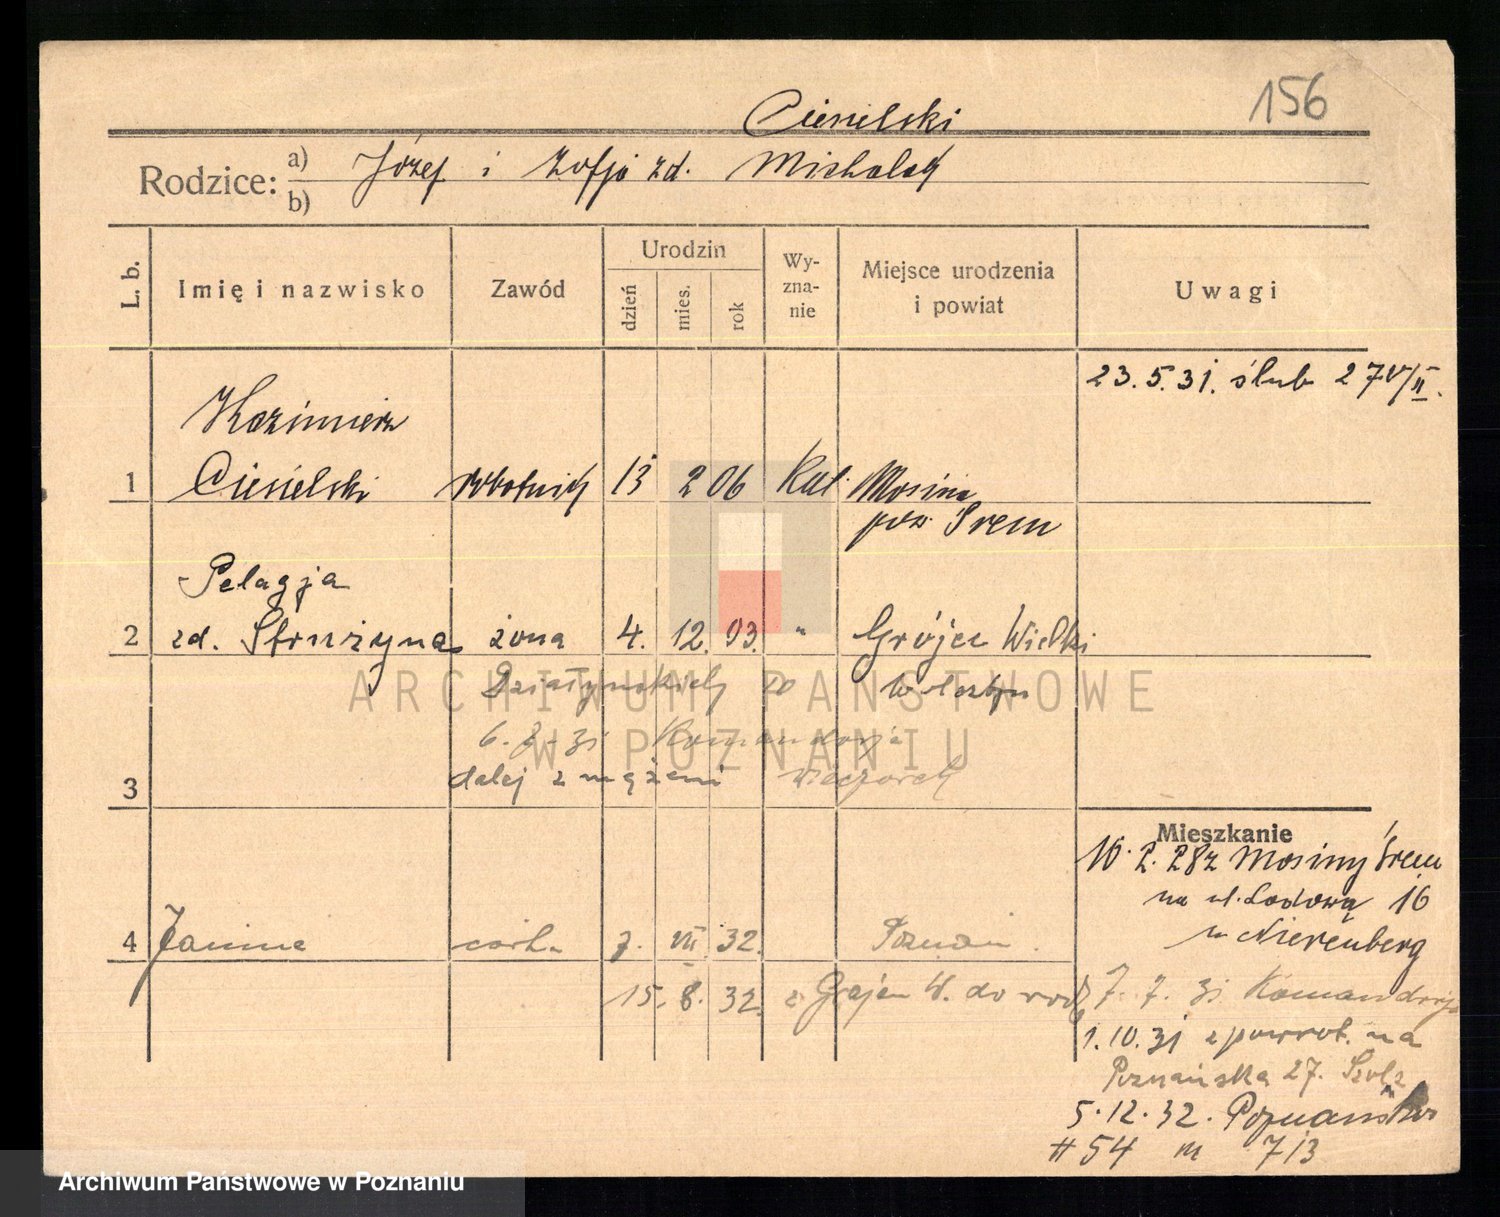 156
Ciesielski
Rodzice: a) Józef i Zofja zd. Michalak
b)
L. b. Imię i nazwisko Zawód Urodzin dzień mies. rok Wy-zna-nie Miejsce urodzenia i powiat Uwagi
23.5.31. ślub 27V/II.
Kazimierz
1 Ciesielski robotnik 13 2 06 Kat. Mosina
pow. Śrem
Pelagja
2 zd. Strużyna żona 4. 12. 03. " Grójec Wielki
Działyńskich 10 Wolsztyn
6. 7. 31 Komandorja
dalej z mężem wieczorek
3
Mieszkanie
16.2.28 z Mosiny Śrem
na ul. Łodową 16
u Nierenberg
4 Janina córka 7. VII 32. Poznań.
15. 8. 32. z Grójca W. do rodz
7. 7. 31 Komandorja
1.10.31 z powrot. na
Poznańska 27.
5.12.32. Poznańska
# 54 m 713
ARCHIWUM PAŃSTWOWE
W POZNANIU
Archiwum Państwowe w Poznaniu